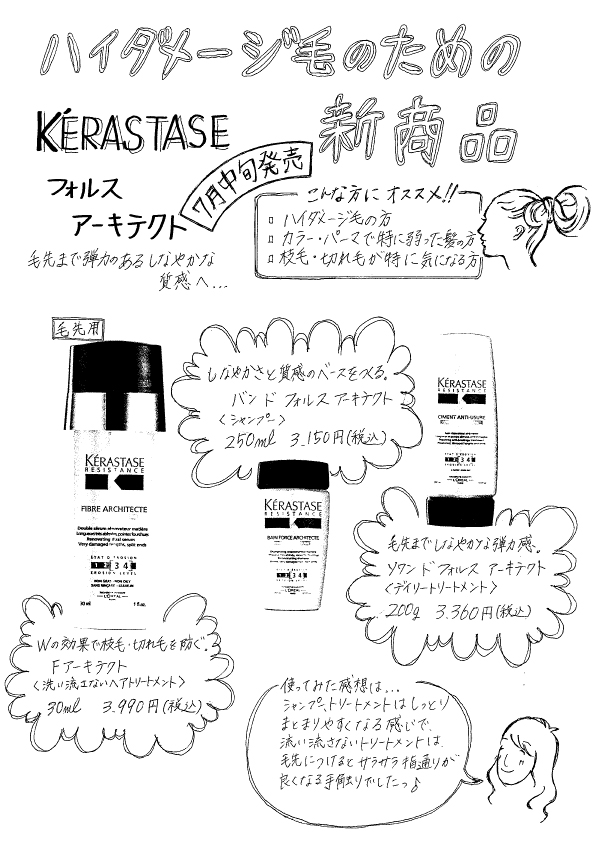 ハイダメージ毛のための
新商品
KÉRASTASE
フォルス
アーキテクト
7月中旬発売
毛先まで弾力のあるしなやかな
質感へ...
こんな方にオススメ!!
ハイダメージ毛の方
カラー・パーマで特に弱った髪の方
枝毛・切れ毛が特に気になる方
毛先用
KÉRASTASE
RESISTANCE
FIBRE ARCHITECTE
1 2 3 4
EROSION LEVEL
L'ORÉAL
30 ml
しなやかさと質感のベースをつくる。
バン ド フォルス アーキテクト
〈シャンプー〉
250ml 3.150円(税込)
KÉRASTASE
RESISTANCE
BAIN FORCE ARCHITECTE
1 2 3 4
KÉRASTASE
RESISTANCE
CIMENT ANTI-USURE
1 2 3 4
毛先までしなやかな弾力感。
ソワン ド フォルス アーキテクト
〈デイリートリートメント〉
200g 3.360円(税込)
Wの効果で枝毛・切れ毛を防ぐ。
Fアーキテクト
〈洗い流さないヘアトリートメント〉
30ml 3.990円(税込)
使ってみた感想は...
シャンプ、トリートメントはしっとり
まとまりやすくなる感じで、
流い流さないトリートメントは、
毛先につけるとサラサラ指通りが
良くなる手触りでしたっ♪